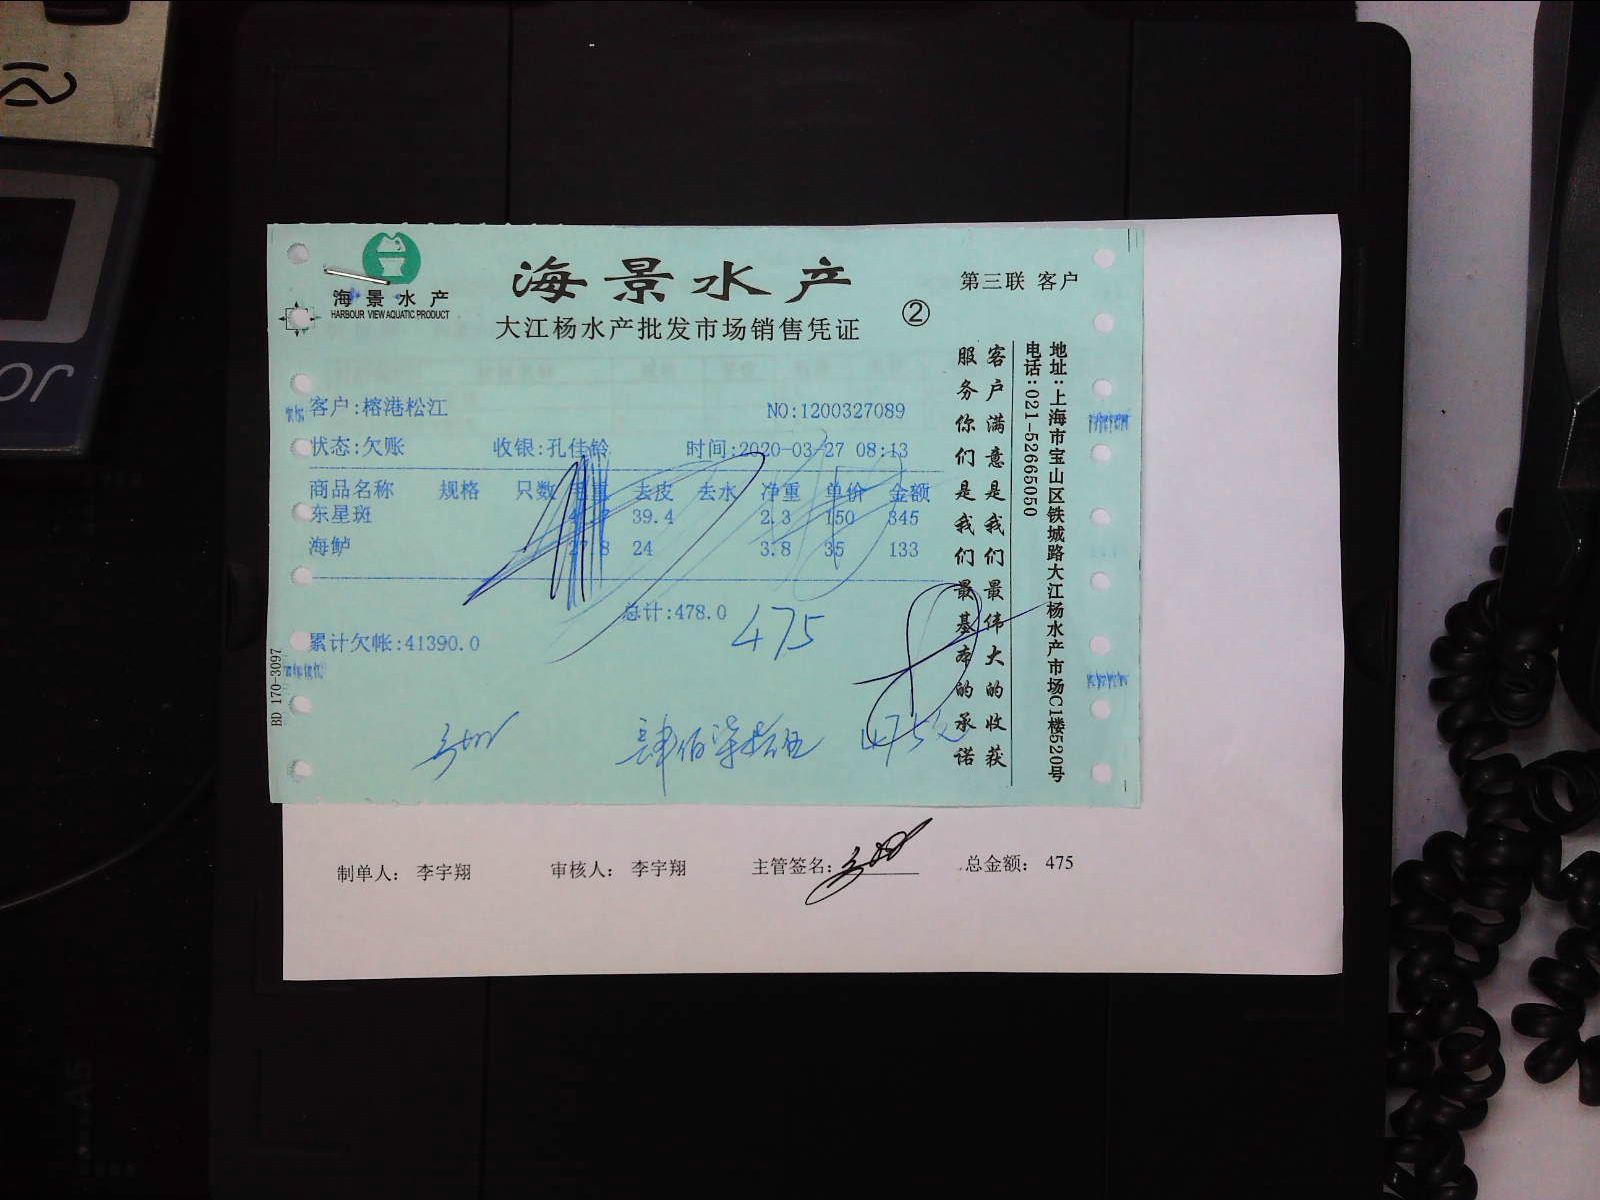 海景水产
HARBOUR VIEW AQUATIC PRODUCT
海景水产
大江杨水产批发市场销售凭证
②
第三联 客户
客户:榕港松江 NO:1200327089
状态:欠账 收银:孔佳铃 时间:2020-03-27 08:13
商品名称 规格 只数 毛重 去皮 去水 净重 单价 金额
东星斑 39.4 2.3 150 345
海鲈 27.8 24 3.8 35 133
总计:478.0
475
累计欠帐:41390.0
肆佰柒拾伍 475元
客户满意是我们最伟大的收获
服务你们是我们最基本的承诺
地址:上海市宝山区铁城路大江杨水产市场C1楼520号
电话:021-52665050
BD 170-3097
制单人: 李宇翔 审核人: 李宇翔 主管签名: 总金额: 475
or